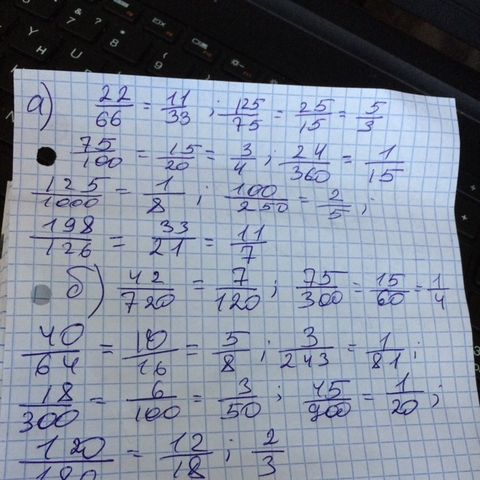 а) 22/66 = 11/33 ; 125/75 = 25/15 = 5/3
75/100 = 15/20 = 3/4 ; 24/360 = 1/15
125/1000 = 1/8 ; 100/250 = 2/5 ;
198/126 = 33/21 = 11/7
б) 42/720 = 7/120 ; 75/300 = 15/60 = 1/4
40/64 = 10/16 = 5/8 ; 3/243 = 1/81 ;
18/300 = 6/100 = 3/50 ; 45/900 = 1/20 ;
120/180 = 12/18 ; 2/3